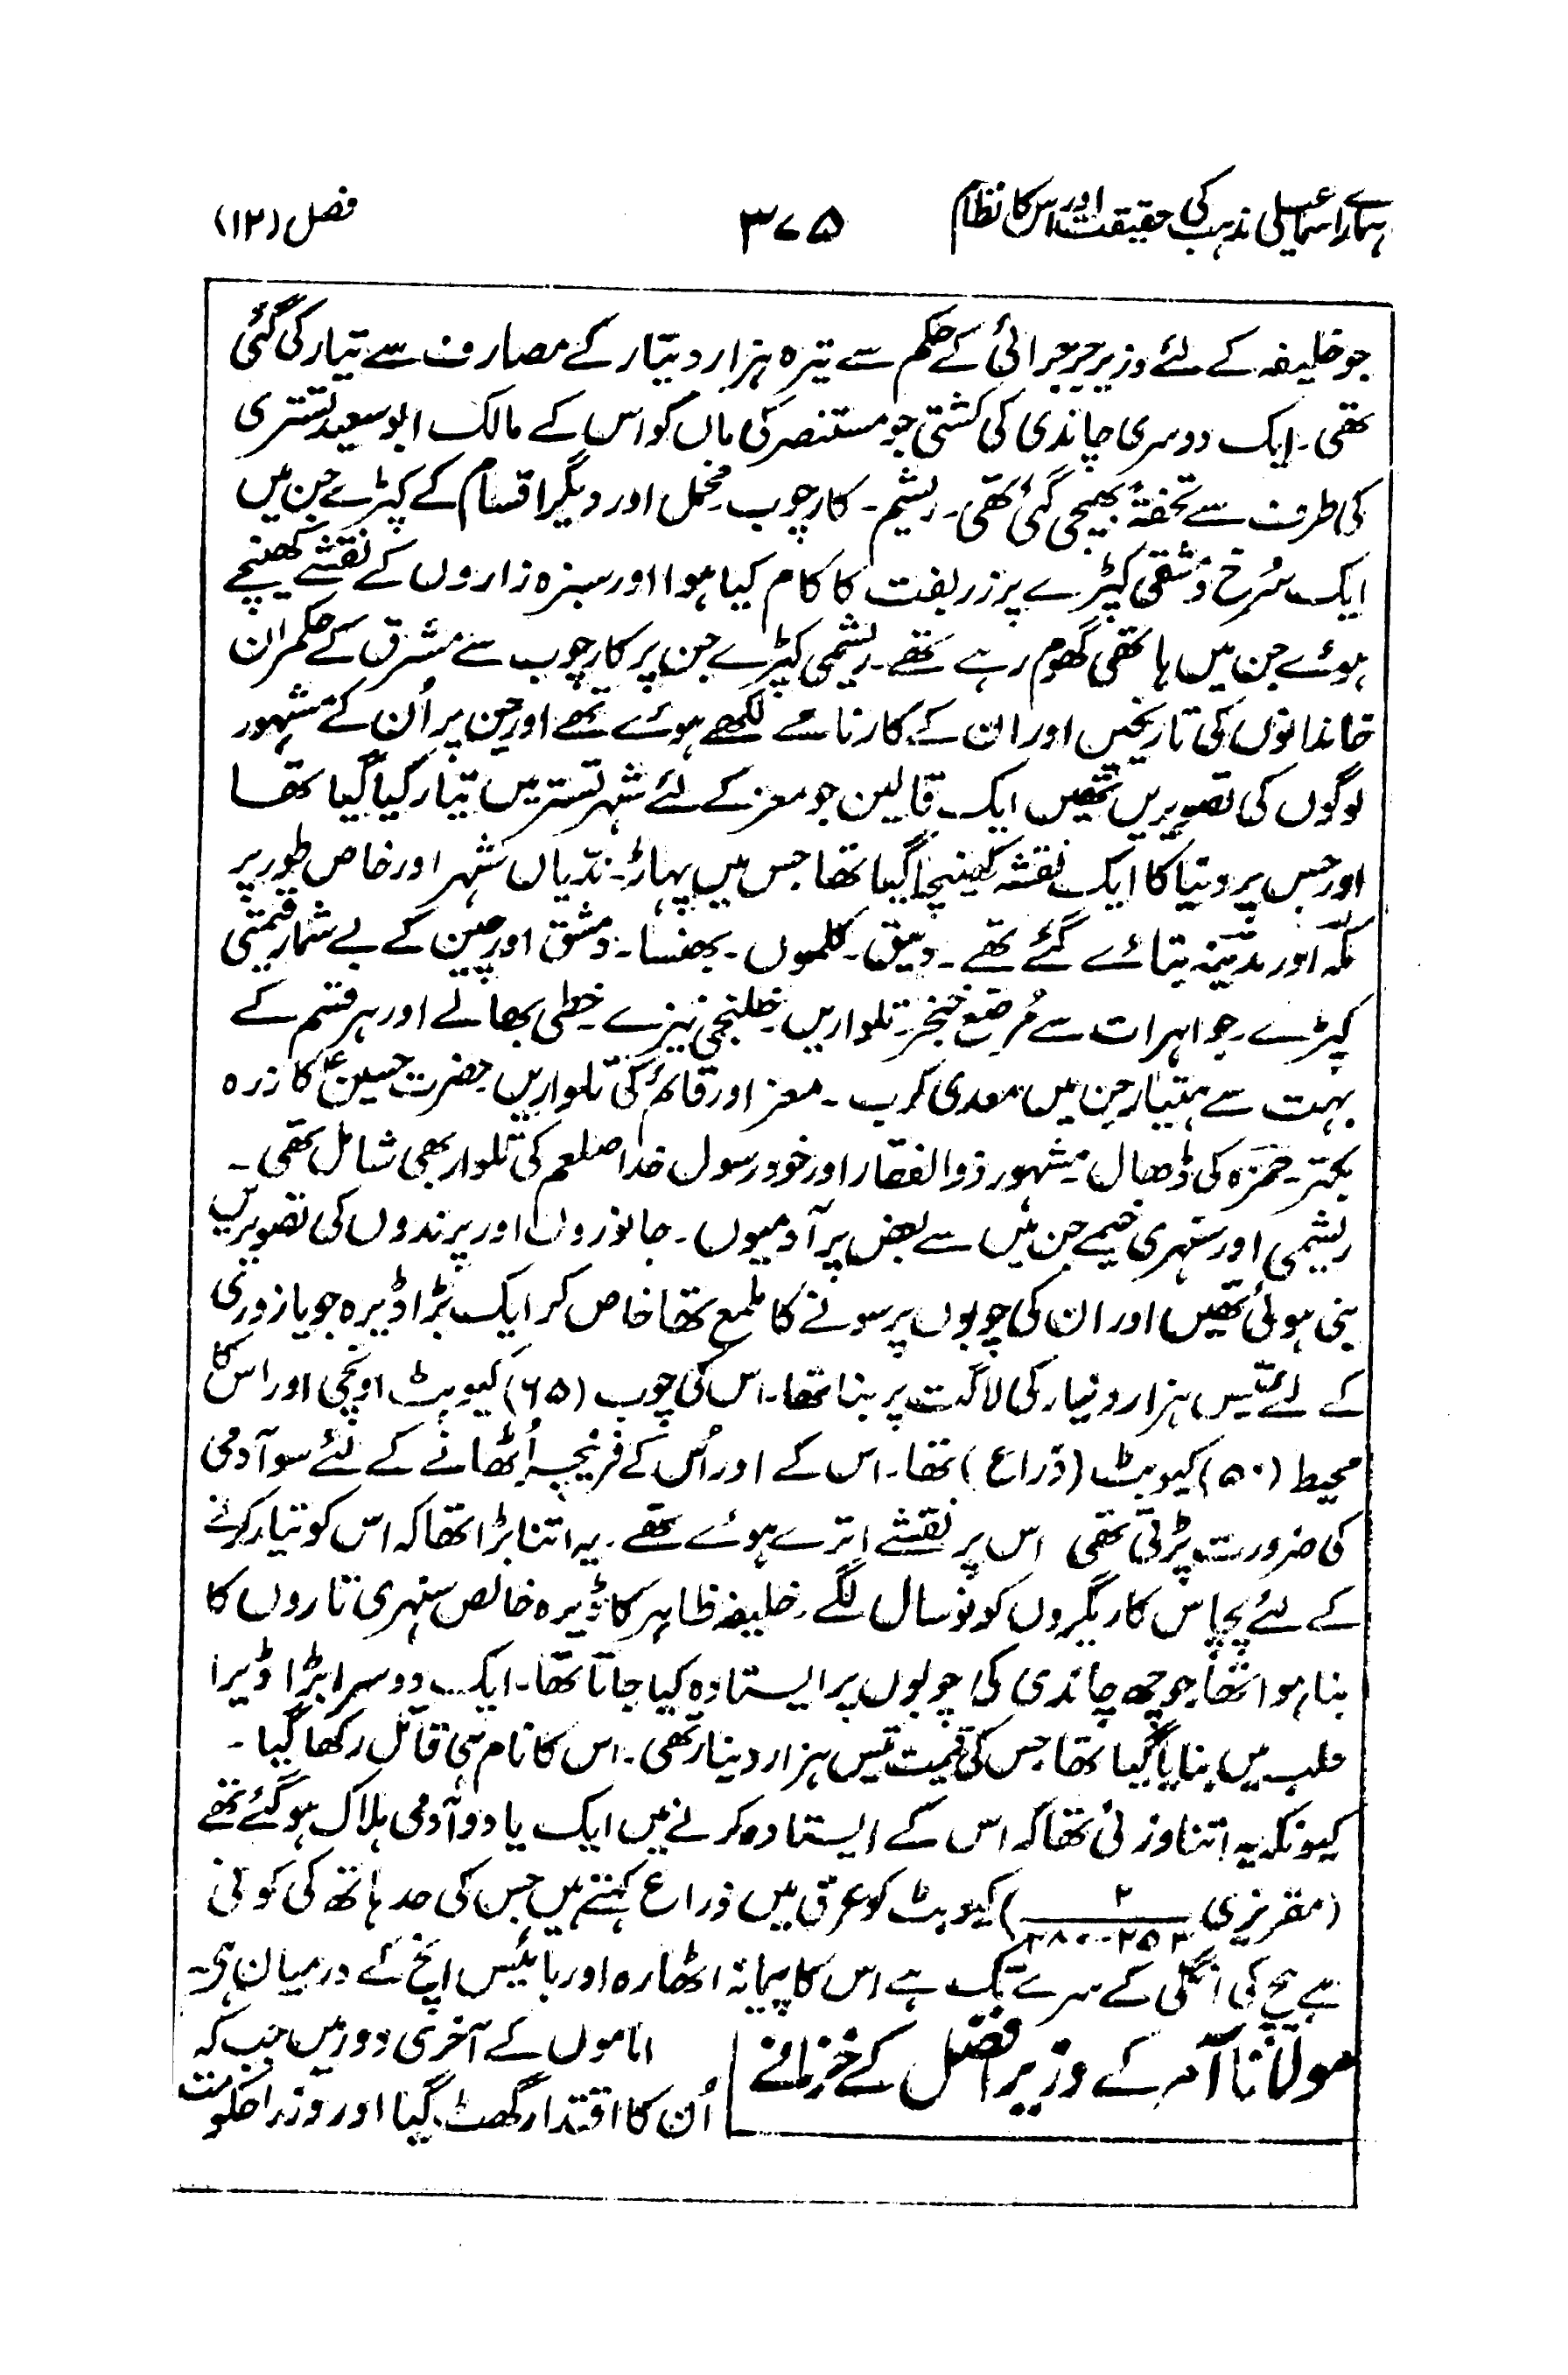 ہمارے اسماعیلی مذہب کی حقیقت اور اس کا نظام ۳۷۵ فصل (۱۲)
جو خلیفہ کے لئے وزیر جرجرائی کے حکم سے تیرہ ہزار دینار کے مصارف سے تیار کی گئی
تھی۔ ایک دوسری چاندی کی کشتی جو مستنصر کی ماں کو اس کے مالک ابو سعید تستری
کی طرف سے تحفۃً بھیجی گئی تھی۔ ریشم۔ کارچوب۔ مخمل اور دیگر اقسام کے کپڑے جن میں
ایک سُرخ دمشقی کپڑے پر زربفت کا کام کیا ہوا اور سبزہ زاروں کے نقشے کھنچے
ہوئے جن میں ہاتھی گھوم رہے تھے۔ ریشمی کپڑے جن پر کارچوب سے مشرق کے حکمران
خاندانوں کی تاریخیں اور ان کے کارنامے لکھے ہوئے تھے اور جن پر اُن کے مشہور
لوگوں کی تصویریں تھیں ایک قالین جو معز کے لئے شہر تستر میں تیار کیا گیا تھا
اور جس پر دنیا کا ایک نقشہ کھینچا گیا تھا جس میں پہاڑ۔ ندیاں شہر اور خاص طور پر
مکہ اور مدینہ بتائے گئے تھے۔ دبیق۔ کلموں۔ بھنسا۔ دمشق اور چین کے بے شمار قیمتی
کپڑے۔ جواہرات سے مُرصّع خنجر۔ تلواریں۔ خلنجی نیزے۔ خطی بھالے اور ہر قسم کے
بہت سے ہتیار جن میں معدی کرب۔ معز اور قائم کی تلواریں۔ حضرت حسینؑ کا زرہ
بکتر۔ حمزہ کی ڈھال۔ مشہور ذوالفقار اور خود رسول خدا صلعم کی تلوار بھی شامل تھی۔
ریشمی اور سنہری خیمے جن میں سے بعض پر آدمیوں۔ جانوروں اور پرندوں کی تصویریں
بنی ہوئی تھیں اور ان کی چوبوں پر سونے کا ملمع تھا خاص کر ایک بڑا ڈیرہ جو یازوری
کے لئے تیس ہزار دینار کی لاگت پر بنا تھا۔ اس کی چوب (۶۵) کیوبٹ اونچی اور اس کا
محیط (۵۰۰) کیوبٹ (ذراع) تھا۔ اس کے اور اُس کے فرنیچر اُٹھانے کے لئے سو آدمی
کی ضرورت پڑتی تھی اس پر نقشے اترے ہوئے تھے۔ یہ اتنا بڑا تھا کہ اس کو تیار کرنے
کے لئے پچاس کاریگروں کو نو سال لگے۔ خلیفہ ظاہر کا ڈیرہ خالص سنہری تاروں کا
بنا ہوا تھا جو چھ چاندی کی چوبوں پر ایستادہ کیا جاتا تھا۔ ایک دوسرا بڑا ڈیرا
حلب میں بنایا گیا تھا جس کی قیمت تیس ہزار دینار تھی۔ اس کا نام ہی قاتل رکھا گیا۔
کیونکہ یہ اتنا وزنی تھا کہ اس کے ایستادہ کرنے میں ایک یا دو آدمی ہلاک ہو گئے تھے
(مقریزی ۲ / ۲۵۳-۲۸۰) کیوبٹ کو عربی میں ذراع کہتے ہیں جس کی حد ہاتھ کی کونی
سے بیچ کی انگلی کے سرے تک ہے اس کا پیمانہ اٹھارہ اور بائیس انچ کے درمیان ہے۔
مولانا آمر کے وزیر افضل کے خزانے | اماموں کے آخری دور میں جب کہ
اُن کا اقتدار گھٹ گیا اور وزرا حکومت